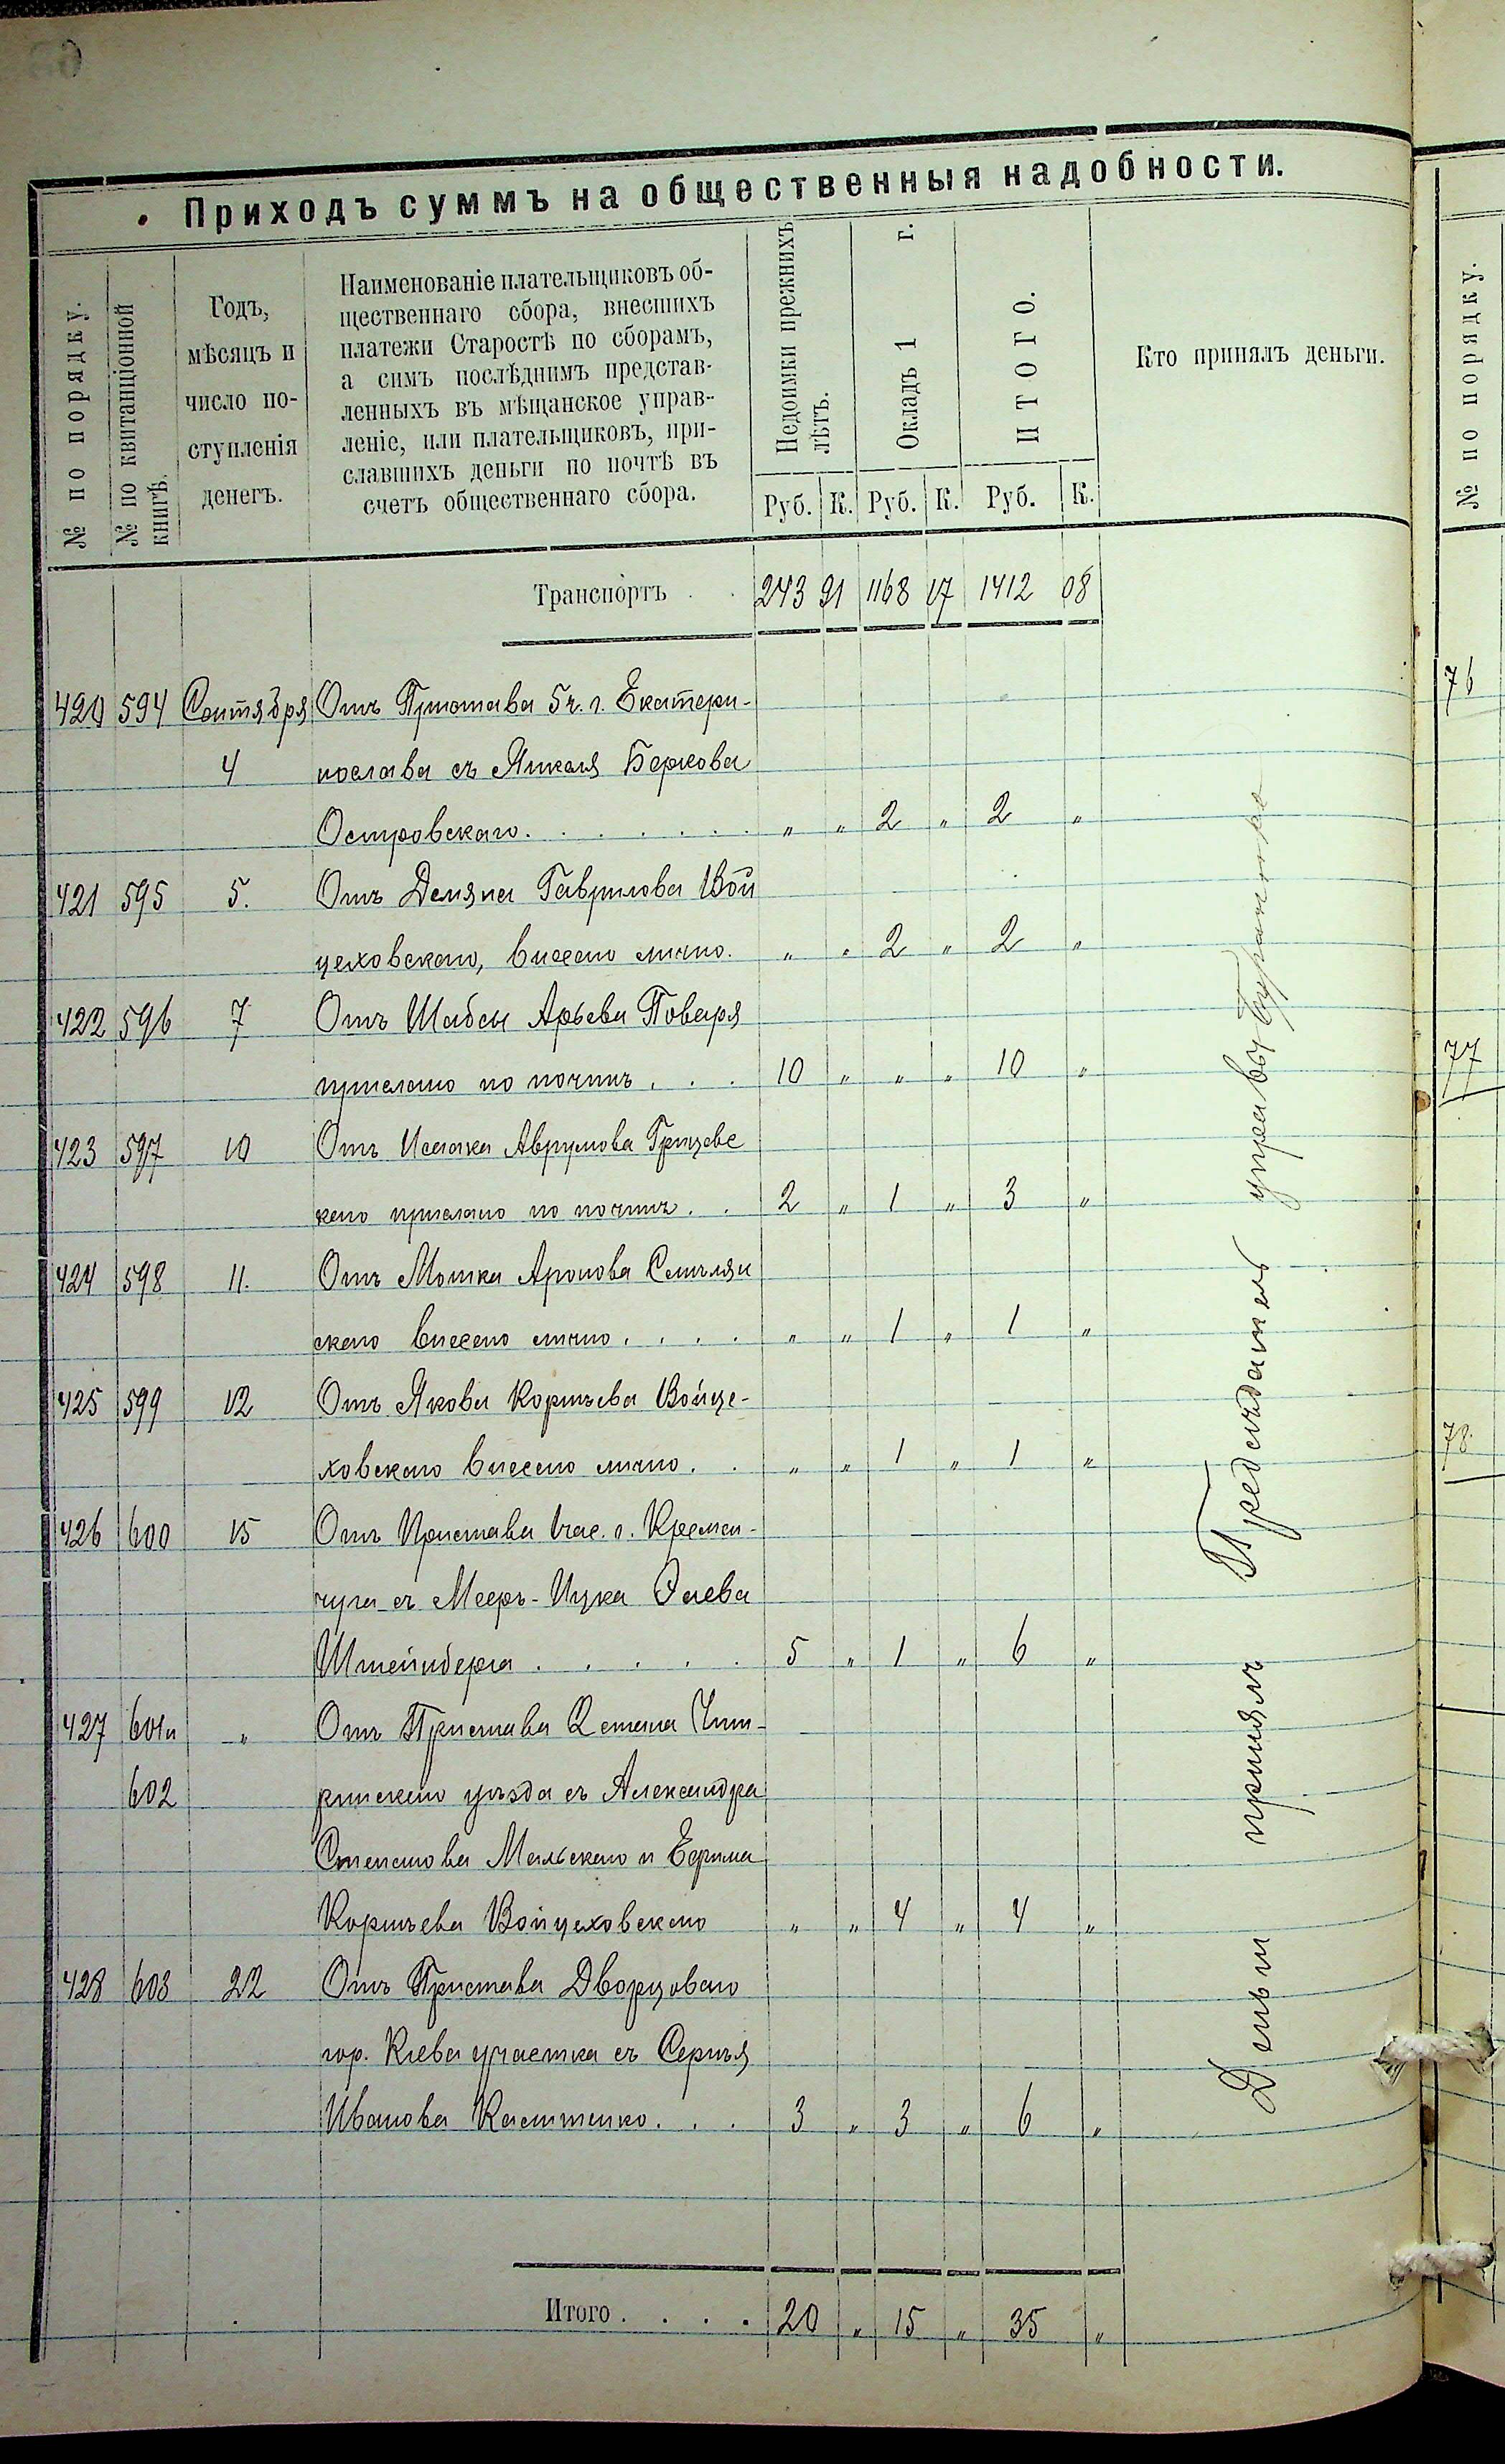 Приходъ суммъ на общественныя надобности.
№ по порядку.
№ по квитанціонной книгѣ.
Годъ,
мѣсяцъ и
число по-
ступленія
денегъ.
Наименованіе плательщиковъ об-
щественнаго сбора, внесшихъ
платежи Старостѣ по сборамъ,
а симъ послѣднимъ представ-
ленныхъ въ мѣщанское управ-
леніе, или плательщиковъ, при-
славшихъ деньги по почтѣ въ
счетъ общественнаго сбора.
Недоимки прежнихъ лѣтъ.
Окладъ 1 г.
ИТОГО.
Руб. К. Руб. К. Руб. К.
Кто принялъ деньги.
Транспортъ . . 243 91 1168 17 1412 08
420 594 Сентября Отъ Пристава 5 ч. г. Екатери-
4 нослава съ Янкеля Беркова
Островскаго . . . . . . . „ „ 2 „ 2 „
421 595 5. Отъ Демяна Гаврилова Вой
цеховскаго, внесено лично. „ „ 2 „ 2 „
422 596 7 Отъ Шабсы Арьева Поваря
прислано по почтѣ . . . 10 „ „ „ 10 „
423 597 10 Отъ Исаака Аврумова Грицевс
каго прислано по почтѣ . . 2 „ 1 „ 3 „
424 598 11. Отъ Мошка Аронова Смѣлян
скаго внесено лично . . . . „ „ 1 „ 1 „
425 599 12 Отъ Якова Корнѣева Войце-
ховскаго внесено лично . . „ „ 1 „ 1 „
426 600 15 Отъ Пристава 1 час. г. Кремен-
чуга съ Меера-Ицка
Штейнберга . . . . . 5 „ 1 „ 6 „
427 601 и „ Отъ Пристава 2 стана Чиги-
602 ринскаго уѣзда съ Александра
Степанова Мальскаго и Ефима
Корнѣева Войцеховскаго „ „ 4 „ 4 „
428 603 22 Отъ Пристава Дворцоваго
гор. Кіева участка съ Сергѣя
Иванова Костенко . . . 3 „ 3 „ 6 „
Итого . . . . 20 „ 15 „ 35 „
Деньги принялъ Предсѣдатель управы
№ по порядку.
76
77
78